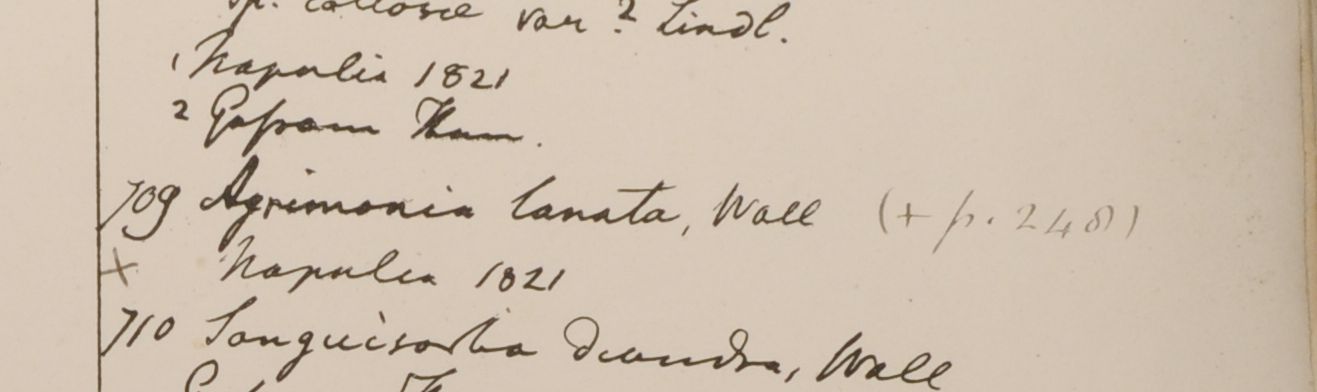 var ? Lindl.
1 Napalia 1821
2 Gossain Than.
709 Agrimonia lanata, Wall (+ p. 248)
+ Napalia 1821
710 Sanguisorba diandra, Wall